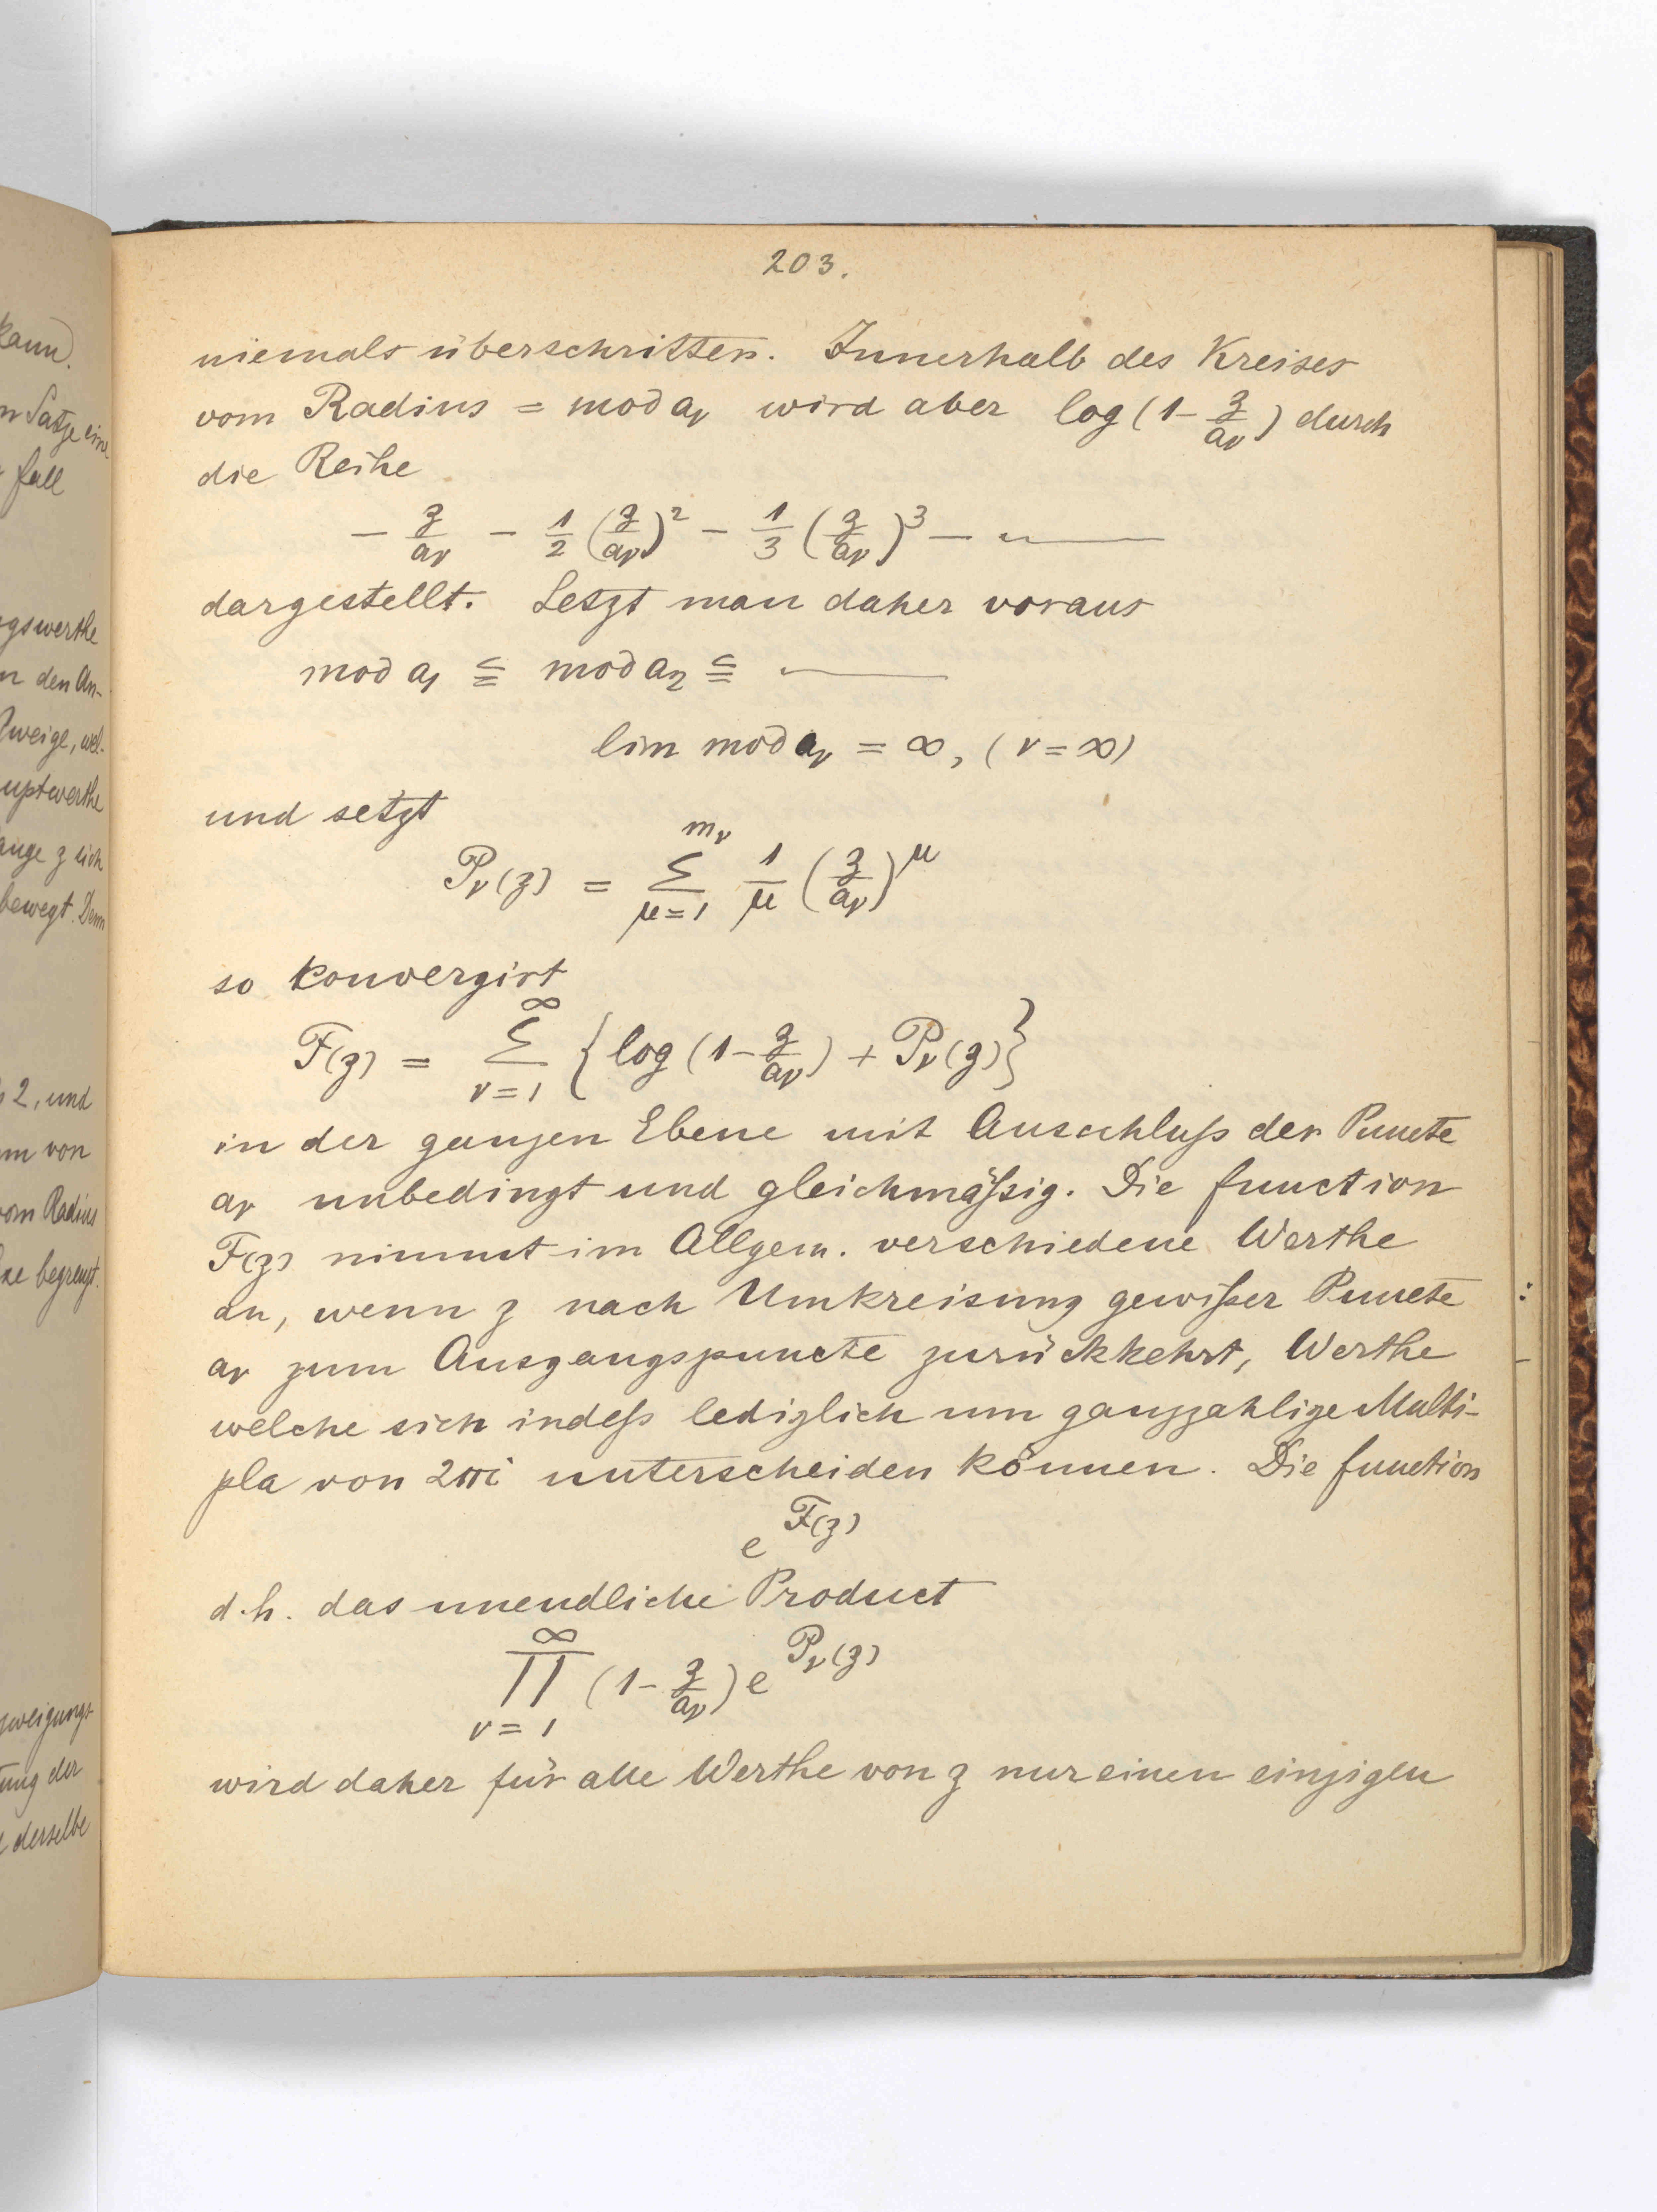 203.
niemals überschritten. Innerhalb des Kreises
vom Radius = mod aν wird aber log (1 - z/aν) durch
die Reihe
- z/aν - 1/2 (z/aν)² - 1/3 (z/aν)³ - ——
dargestellt. Setzt man daher voraus
mod a₁ ≦ mod a₂ ≦ ——
lim mod aν = ∞, (ν = ∞)
und setzt
Pν(z) = Σ_{μ=1}^{mν} 1/μ (z/aν)^μ
so konvergirt
F(z) = Σ_{ν=1}^{∞} {log (1 - z/aν) + Pν(z)}
in der ganzen Ebene mit Ausschluß der Puncte
aν unbedingt und gleichmäßig. Die function
F(z) nimmt im Allgem. verschiedene Werthe
an, wenn z nach Umkreisung gewißer Puncte
aν zum Ausgangspuncte zurückkehrt, Werthe
welche sich indeß lediglich um ganzzahlige Multi-
pla von 2πi unterscheiden können. Die function
e^{F(z)}
d.h. das unendliche Product
∏_{ν=1}^{∞} (1 - z/aν) e^{Pν(z)}
wird daher für alle Werthe von z nur einen einzigen
kann).
n Satze ein
fall
gswerthe
n den An-
Zweige, wel-
uptwerthe
ange z sich
bewegt. Dann
2, und
m von
vom Radius
xe begrenzt.
zweigungs-
tung der
derselbe